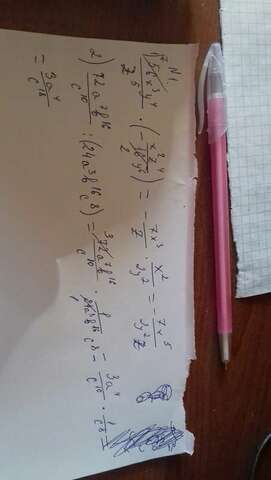 N1
1) \frac{56x^3y^4}{z^5} \cdot (-\frac{x^2z^4}{16y^6}) = -\frac{7x^3}{z} \cdot \frac{x^2}{2y^2} = -\frac{7x^5}{2y^2z}
2) \frac{72a^7b^{16}}{c^{10}} : (24a^3b^{16}c^8) = \frac{72a^7b^{16}}{c^{10}} \cdot \frac{1}{24a^3b^{16}c^8} = \frac{3a^4}{c^{10}} \cdot \frac{1}{c^8} =
= \frac{3a^4}{c^{18}}